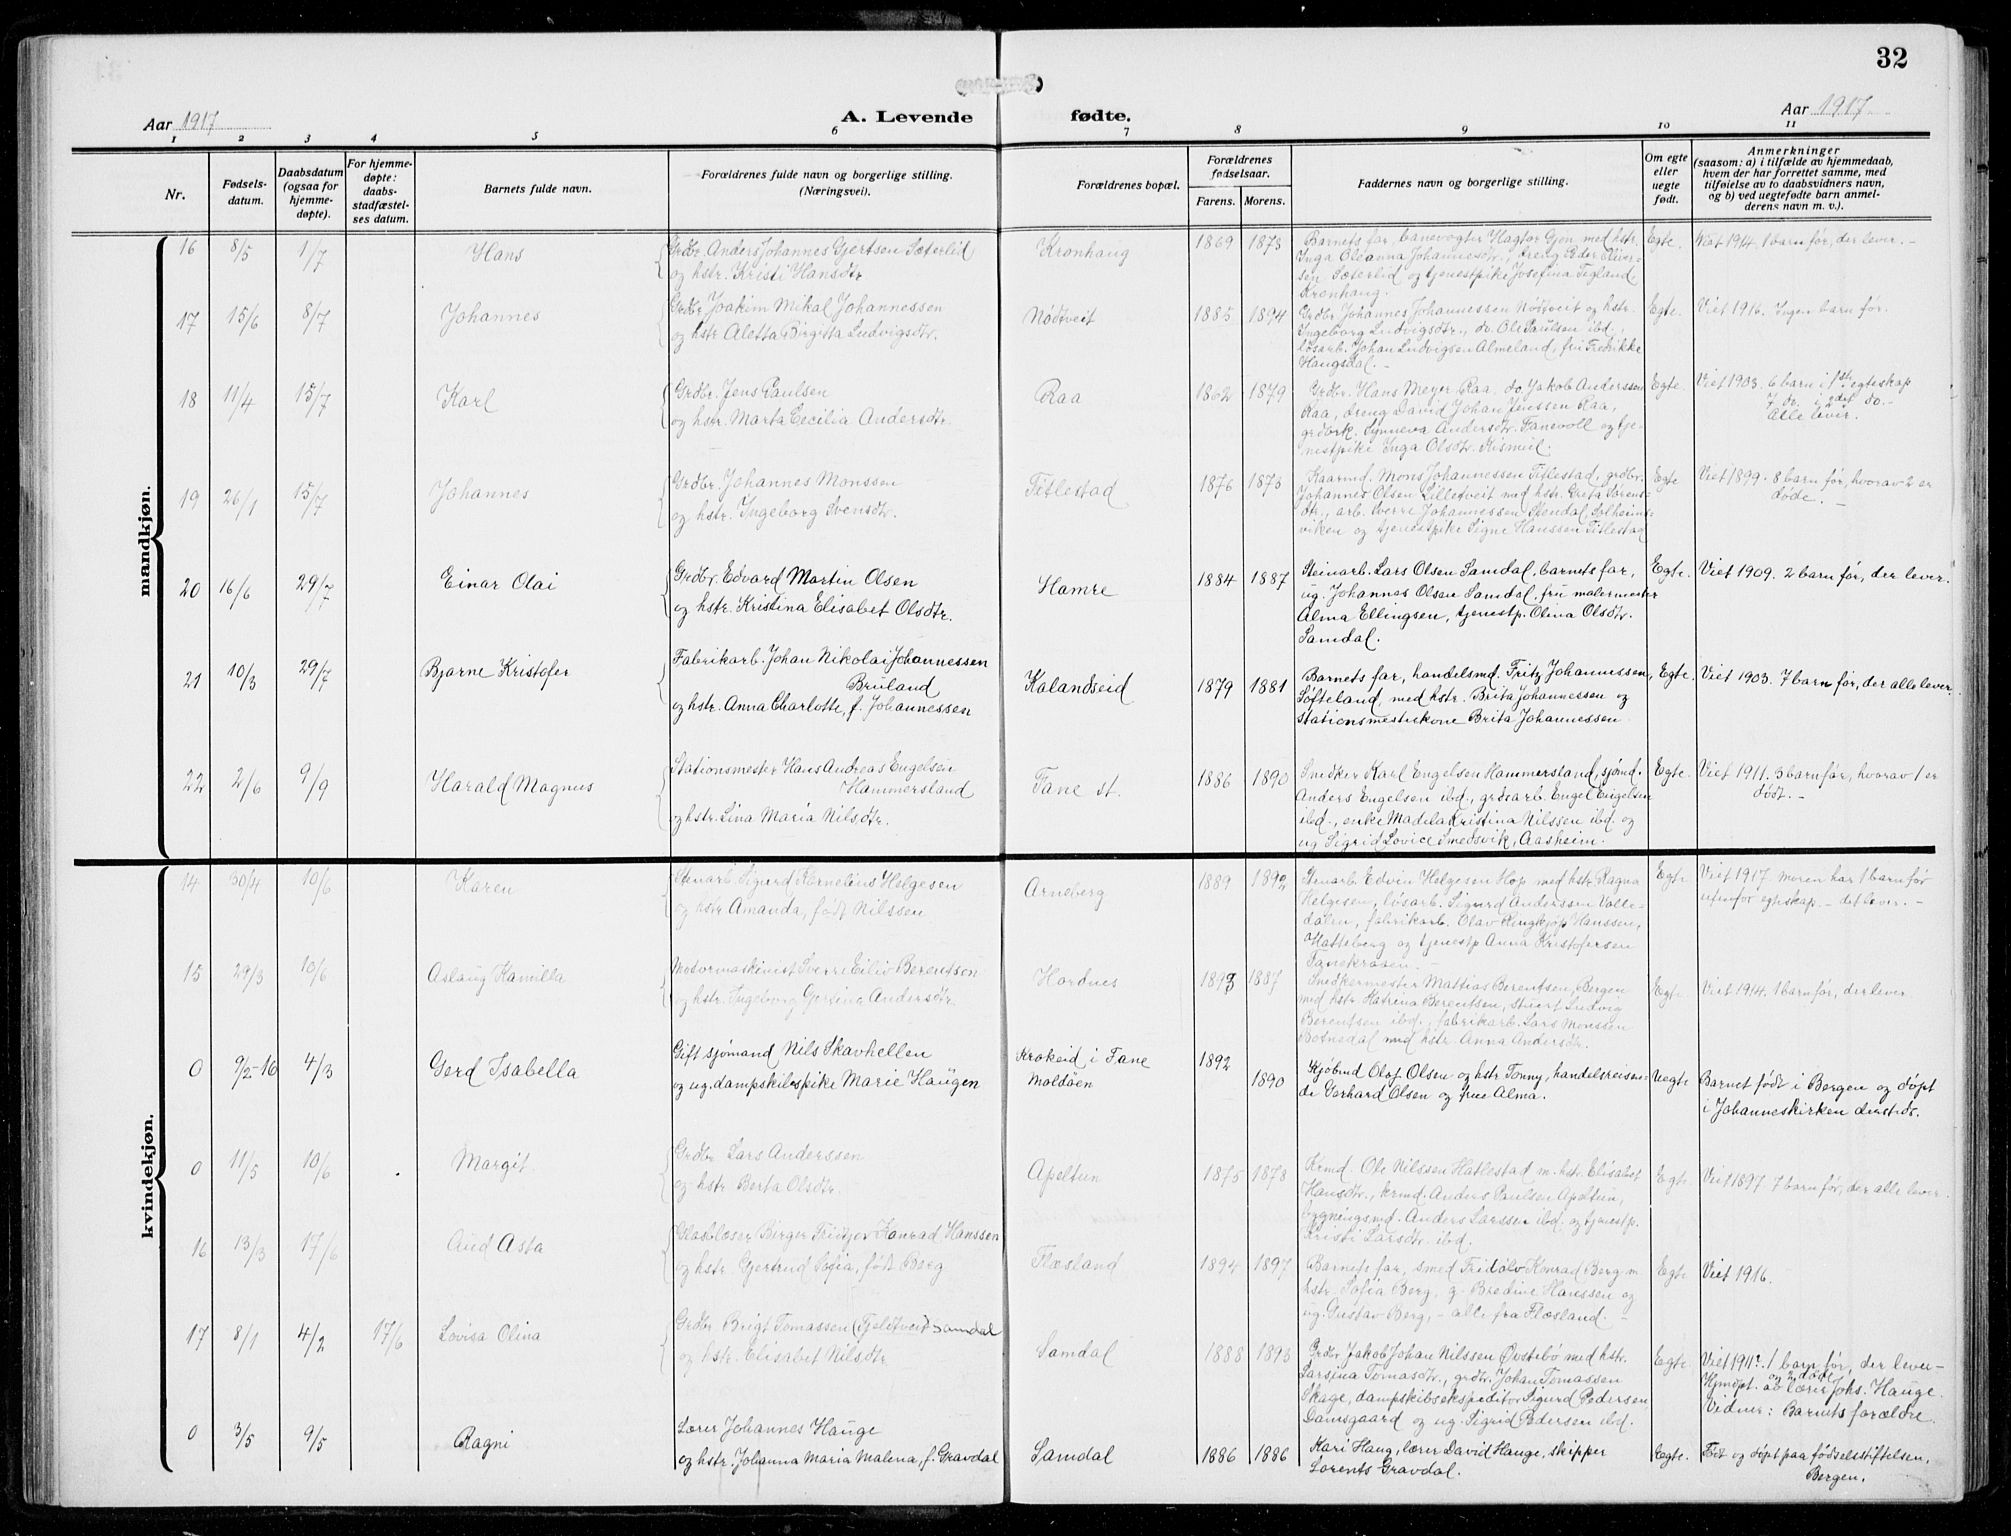 32
Aar 1917
A. Levende fødte.
Aar 1917
1 2 3 4 5 6 7 8 9 10 11
Nr.
Fødsels-
datum.
Daabsdatum
(ogsaa for
hjemme-
døpte).
For hjemme-
døpte:
daabs-
stadfæstel-
ses datum.
Barnets fulde navn.
Forældrenes fulde navn og borgerlige stilling.
(Næringsvei).
Forældrenes bopæl.
Forældrenes
fødselsaar.
Farens. Morens.
Faddernes navn og borgerlige stilling.
Om egte
eller
uegte
født.
Anmerkninger
(saasom: a) i tilfælde av hjemmedaab,
hvem der har forrettet samme, med
tilføielse av to daabsvidners navn,
og b) ved uegtefødte barn anmel-
derens navn m. v.).
mandkjøn.
16 8/5 1/7 Hans
Grdbr. Anders Johannes Gjertsen Sæterlid
og hstr. Kristi Hansdtr.
Kronhaug 1869 1873
Barnets far, banevogter Hagtor Gjøn med hstr.
Inga Oleanna Johannesdtr., dreng Peder Oliver-
sen Sæterlid og tjenestpike Josefina Tegland
Kronhaug.
Egte. Viet 1914. 1 barn før, der lever. -
17 15/6 8/7 Johannes
Grdbr. Joakim Mikal Johannessen
og hstr. Aletta Birgitta Ludvigsdtr.
Nødtveit 1885 1894
Grdbr. Johannes Johannessen Nødtveit og hstr.
Ingeborg Ludvigsdtr., do. Ole Paulsen ibd.,
løsarb. Johan Ludvigsen Almeland, fru Fredrikke
Haugsdal. -
Egte. Viet 1916. Ingen barn før.
18 11/4 15/7 Karl
Grdbr. Jens Paulsen
og hstr. Marta Cecilia Andersdtr.
Raa 1862 1879
Grdbr. Hans Meyer Raa, do. Jakob Anderssen
Raa, dreng David Johan Jenssen Raa,
grdbrk. Synneva Andersdtr. Fanevoll og tje-
nestpike Inga Olsdtr. Kismul.
Egte. Viet 1903. 6 barn i 1ste egteskap
7 do. i 2det do. -
Alle lever.
19 26/1 15/7 Johannes
Grdbr. Johannes Monssen
og hstr. Ingeborg Svensdtr.
Titlestad 1876 1873
Kaarmd. Mons Johannessen Titlestad, grdbr.
Johannes Olsen Lilletveit med hstr. Greta Sørens-
dtr., arb. Sverre Johannessen Stendal Solheims-
viken og tjenestpike Signe Hanssen Titlestad
Egte Viet 1899. 8 barn før, hvorav 2 er
døde. -
20 16/6 29/7 Einar Olai
Grdbr. Edvard Martin Olsen
og hstr. Kristina Elisabet Olsdtr.
Hamre 1884 1887
Steinarb. Lars Olsen Samdal, barnets far,
ug. Johannes Olsen Samdal, fru malermester
Alma Ellingsen, tjenestp. Olina Olsdtr.
Samdal.
Egte. Viet 1909. 2 barn før, der lever.
21 10/3 29/7 Bjarne Kristofer
Fabrikarb. Johan Nikolai Johannessen
Bruland
og hstr. Anna Charlotte, f. Johannessen
Kalandseid 1879 1881
Barnets far, handelsmd. Fritz Johannessen,
Søfteland, med hstr. Brita Johannessen og
stationsmesterkone Brita Johannessen
Egte. Viet 1903. 7 barn før, der alle lever.
22 2/6 9/9 Harald Magnus
Stationsmester Hans Andreas Engelsen
Hammersland
og hstr. Lina Maria Nilsdtr.
Fane st. 1886 1890
Snedker Karl Engelsen Hammersland, sjømd.
Anders Engelsen ibd., grdsarb. Engel Engelsen
ibd., enke Madela Kristina Nilssen ibd. og
ug Sigrid Lovice Smedsvik, Aasheim.
Egte. Viet 1911. 3 barn før, hvorav 1 er
dødt. -
kvindekjøn.
14 30/4 10/6 Karen
Stenarb. Sigurd Kornelius Helgesen
og hstr. Amanda, født Nilssen
Arneberg 1889 1892
Stenarb. Edvin Helgesen Hop med hstr. Ragna
Helgesen, løsarb. Sigurd Anderssen Valle-
dalen, fabrikarb. Olav Ringkjøp Hanssen,
Hatteberg og tjenestp Anna Kristofersen
Fanekraaen. -
Egte Viet 1917. moren har 1 barn før
utenfor egteskap. - det lever. -
15 29/3 10/6 Aslaug Kamilla
Motormaskinist Sverre Eiliv Berentsen
og hstr. Ingeborg Gersine Andersdtr.
Hordnes 1893 1887
Snedkermester Mattias Berentsen, Bergen
med hstr. Katrina Berentsen, stuert Ludvig
Berentsen ibd., fabrikarb. Lars Monssen
Botnedal med hstr. Anna Andersdtr.
Egte Viet 1914. 1 barn før, der lever
0 9/2-16 4/3 Gerd Isabella
Gift sjømand Nils Skavhellen
og ug. dampskibspike Marie Haugen
Krokeid i Fane
Moldöen
1892 1890
Kjøbmd Olaf Olsen og hstr. Tonny, handelsreisen-
de Gerhard Olsen og frue Alma.
Uegte Barnet født i Bergen og døpt
i Johanneskirken dersteds.
0 11/5 10/6 Margit
Grdbr. Lars Anderssen
og hstr Berta Olsdtr.
Apeltun 1875 1878
Krmd. Ole Nilssen Hatlestad m. hstr. Elisabet
Hansdtr., krmd. Anders Paulsen Apeltun,
bygningsmd. Anders Larssen ibd. og tjenestp.
Kristi Larsdtr. ibd.
Egte Viet 1897. 7 barn før, der alle lever.
16 13/3 17/6 Aud Asta
Glasblæser Birger Fridtjov Konrad Hanssen
og hstr. Gjertrud Sofia, født Berg
Flæsland 1894 1897
Barnets far, smed Fridolv Konrad Berg m.
hstr. Sofia Berg, g. Bredine Hanssen og
ug. Gustav Berg, - alle fra Flæsland. -
Egte Viet 1916.
17 8/1 4/2 17/6 Lovisa Olina
Grdbr. Brigt Tomassen (Fjeldtveit) Samdal
og hstr. Elisabet Nilsdtr
Samdal 1888 1893
Grdbr Jakob Johan Nilssen Øvstebø med hstr.
Larsina Tomasdtr., grdbr. Johan Tomassen
Skage, dampskibsekspeditor Sigurd Pedersen
Damsgaard og ug. Sigrid Pedersen ibd.
Egte. Viet 1911. 1 barn før, der lever -
og 2 døde
Hjmdøpt. ab lærer Johs. Hauge.
Vidner: Barnets forældre.
0 3/5 9/5 Ragni
Lærer Johannes Hauge
og hstr. Johanna Maria Malena, f. Gravdal
Samdal 1886 1886
Kari Haug, lærer David Hauge, skipper
Lorents Gravdal.
Egte. Født og døpt paa fødselsstiftelsen,
Bergen.